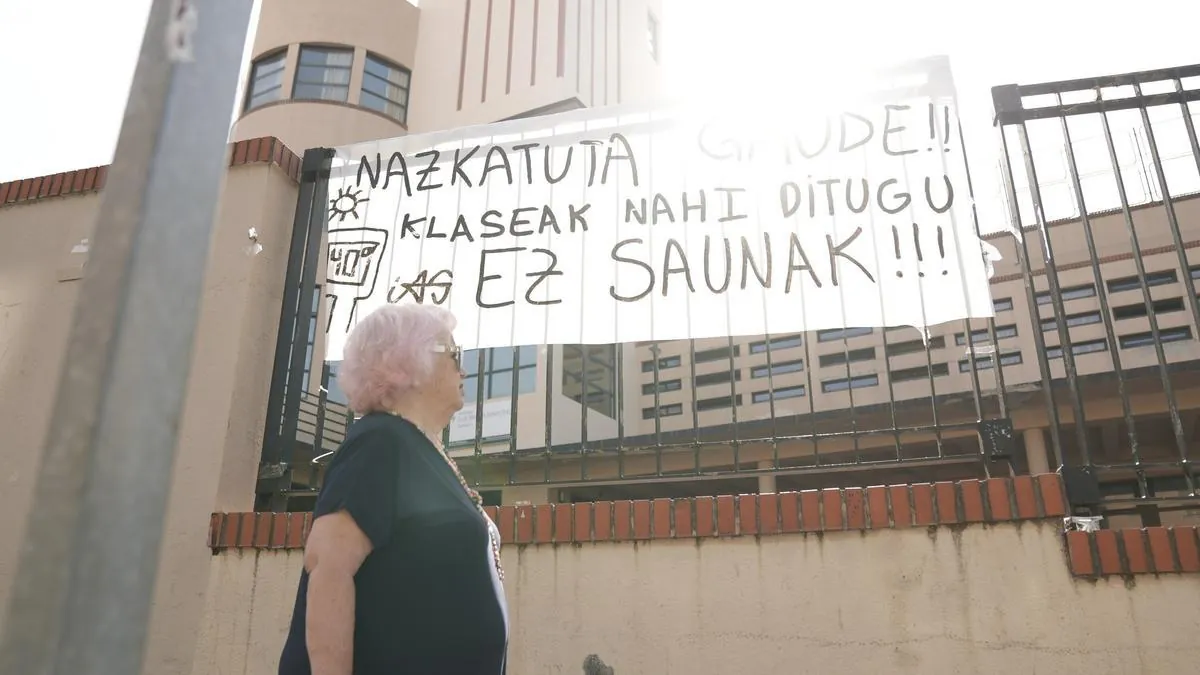 NAZKATUTA GAUDE!!
KLASEAK NAHI DITUGU
40º
EZ SAUNAK!!!